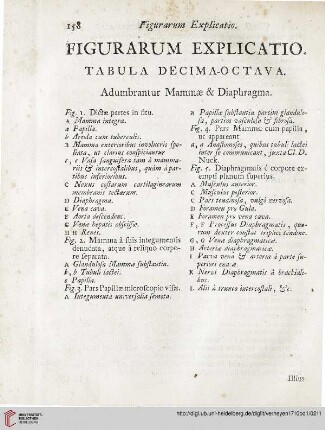 158 Figurarum Explicatio.
FIGURARUM EXPLICATIO.
TABULA DECIMA-OCTAVA.
Adumbrantur Mammæ & Diaphragma.
Fig. 1. Dictæ partes in situ.
a Mamma integra.
a Papilla.
b Areola cum tuberculis.
B Mamma exterioribus involucris spoliata, ut clarius conspiciantur
c, c Vasa sanguifera tam à mammariis & intercostalibus, quàm à partibus inferioribus.
C Nexus costarum cartilagineorum membranis tectarum.
D Diaphragma.
E Vena cava.
F Aorta descendens.
G Vena hepatis obscissæ.
H H Renes.
Fig. 2. Mamma à suis integumentis denudata, atque à reliquo corpore separata.
A Glandulosa Mammæ substantia.
b, b Tubuli lactei.
c Papilla.
Fig. 3. Pars Papillæ microscopio visæ.
A Integumenta universalia remota.
B Papillæ substantia partim glandulosa, partim vasculosa & fibrosa.
Fig. 4. Pars Mammæ cum papilla, ut apparent
a, a Anastomoses, quibus tubuli lactei inter se communicant, juxta Cl. D. Nuck.
Fig. 5. Diaphragmatis è corpore exempti planum superius.
A Musculus superior.
B Musculus posterior.
C Pars tendinosa, vulgò nervosa.
D Foramen pro Gula.
E Foramen pro vena cava.
F, F Processus Diaphragmatis, quorum dexter constat triplici tendine.
G, G Venæ diaphragmaticæ.
H Arteria diaphragmatica.
I Parva vena & arteria à parte superiori enatæ
K Nervi Diaphragmatis à brachialibus.
L Alii à truncis intercostali, &c.
Illius
UNIVERSITÄTS-BIBLIOTHEK HEIDELBERG
http://digi.ub.uni-heidelberg.de/diglit/verheyen1710bd1/0211